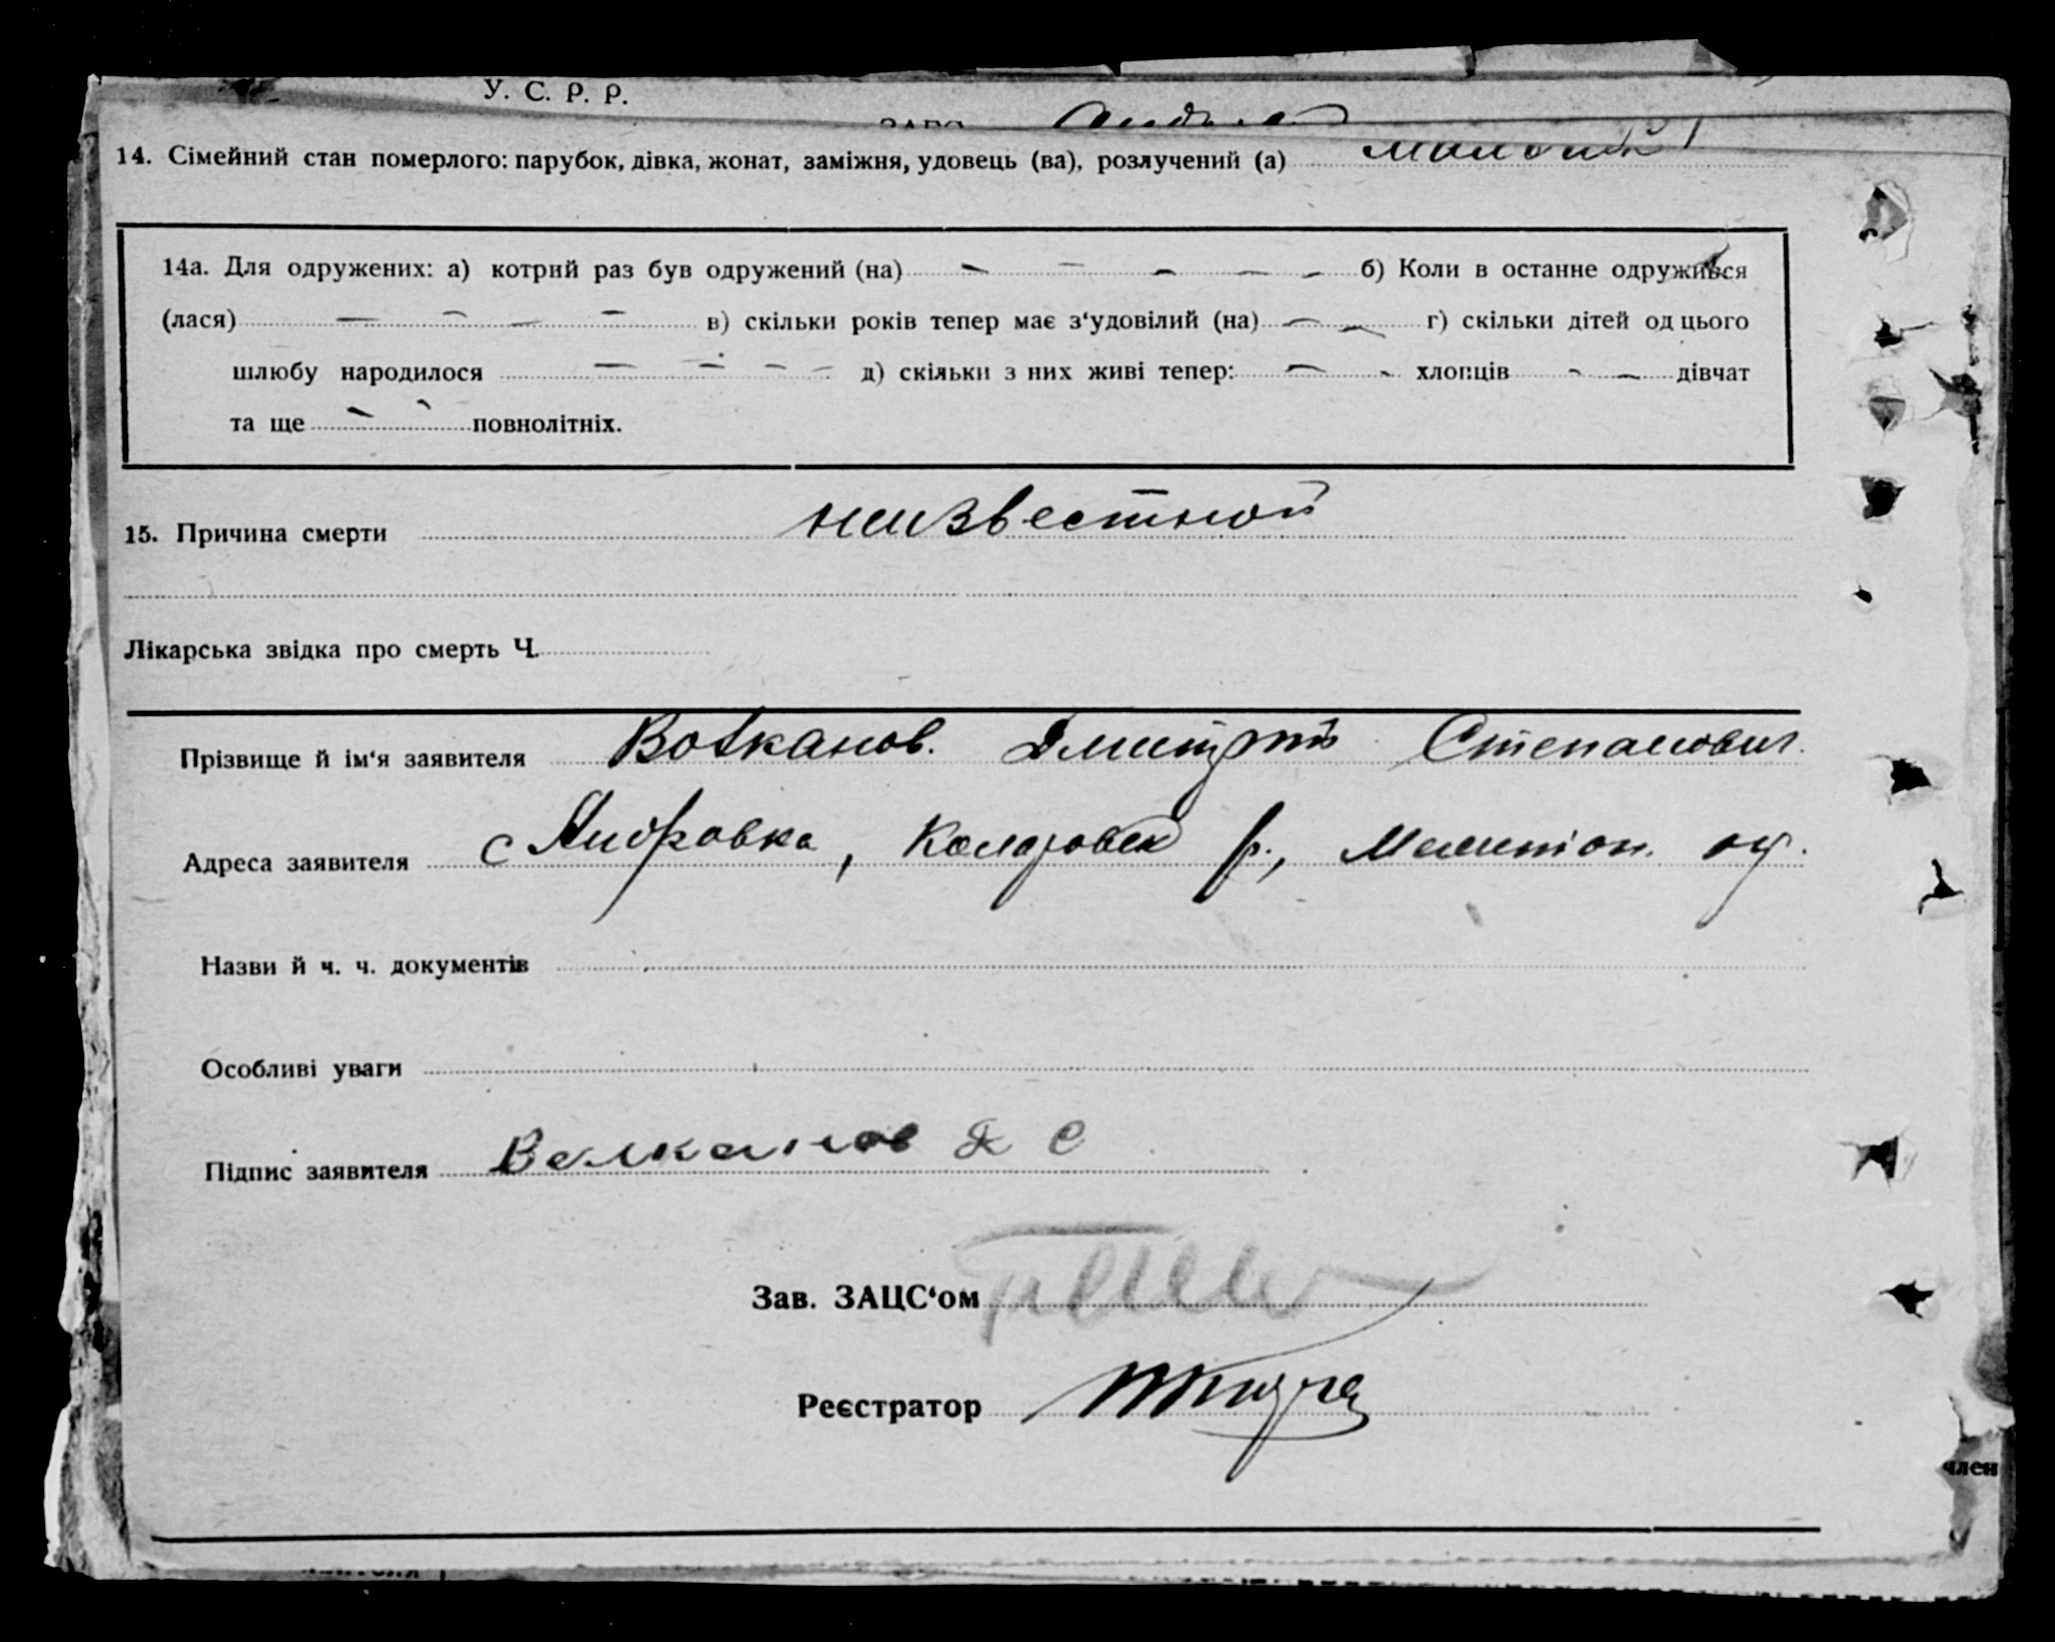 У. С. Р. Р.
14. Сімейний стан померлого: парубок, дівка, жонат, заміжня, удовець (ва), розлучений (а)
14а. Для одружених: а) котрий раз був одружений (на) — — — — — б) Коли в останне одружився
(лася) — — — — в) скільки років тепер має з‘удовілий (на) — — г) скільки дітей од цього
шлюбу народилося — — — — д) скільки з них живі тепер: — — хлопців — — дівчат
та ще — — повнолітніх.
15. Причина смерти неизвестной
Лікарська звідка про смерть Ч.
Прізвище й ім‘я заявителя Волканов. Дмитрий Степанович.
Адреса заявителя с Андровка, Коларовск р., Мелитоп. окр.
Назви й ч. ч. документів
Особливі уваги
Підпис заявителя Волканов Д С
Зав. ЗАЦС‘ом
Реєстратор
член